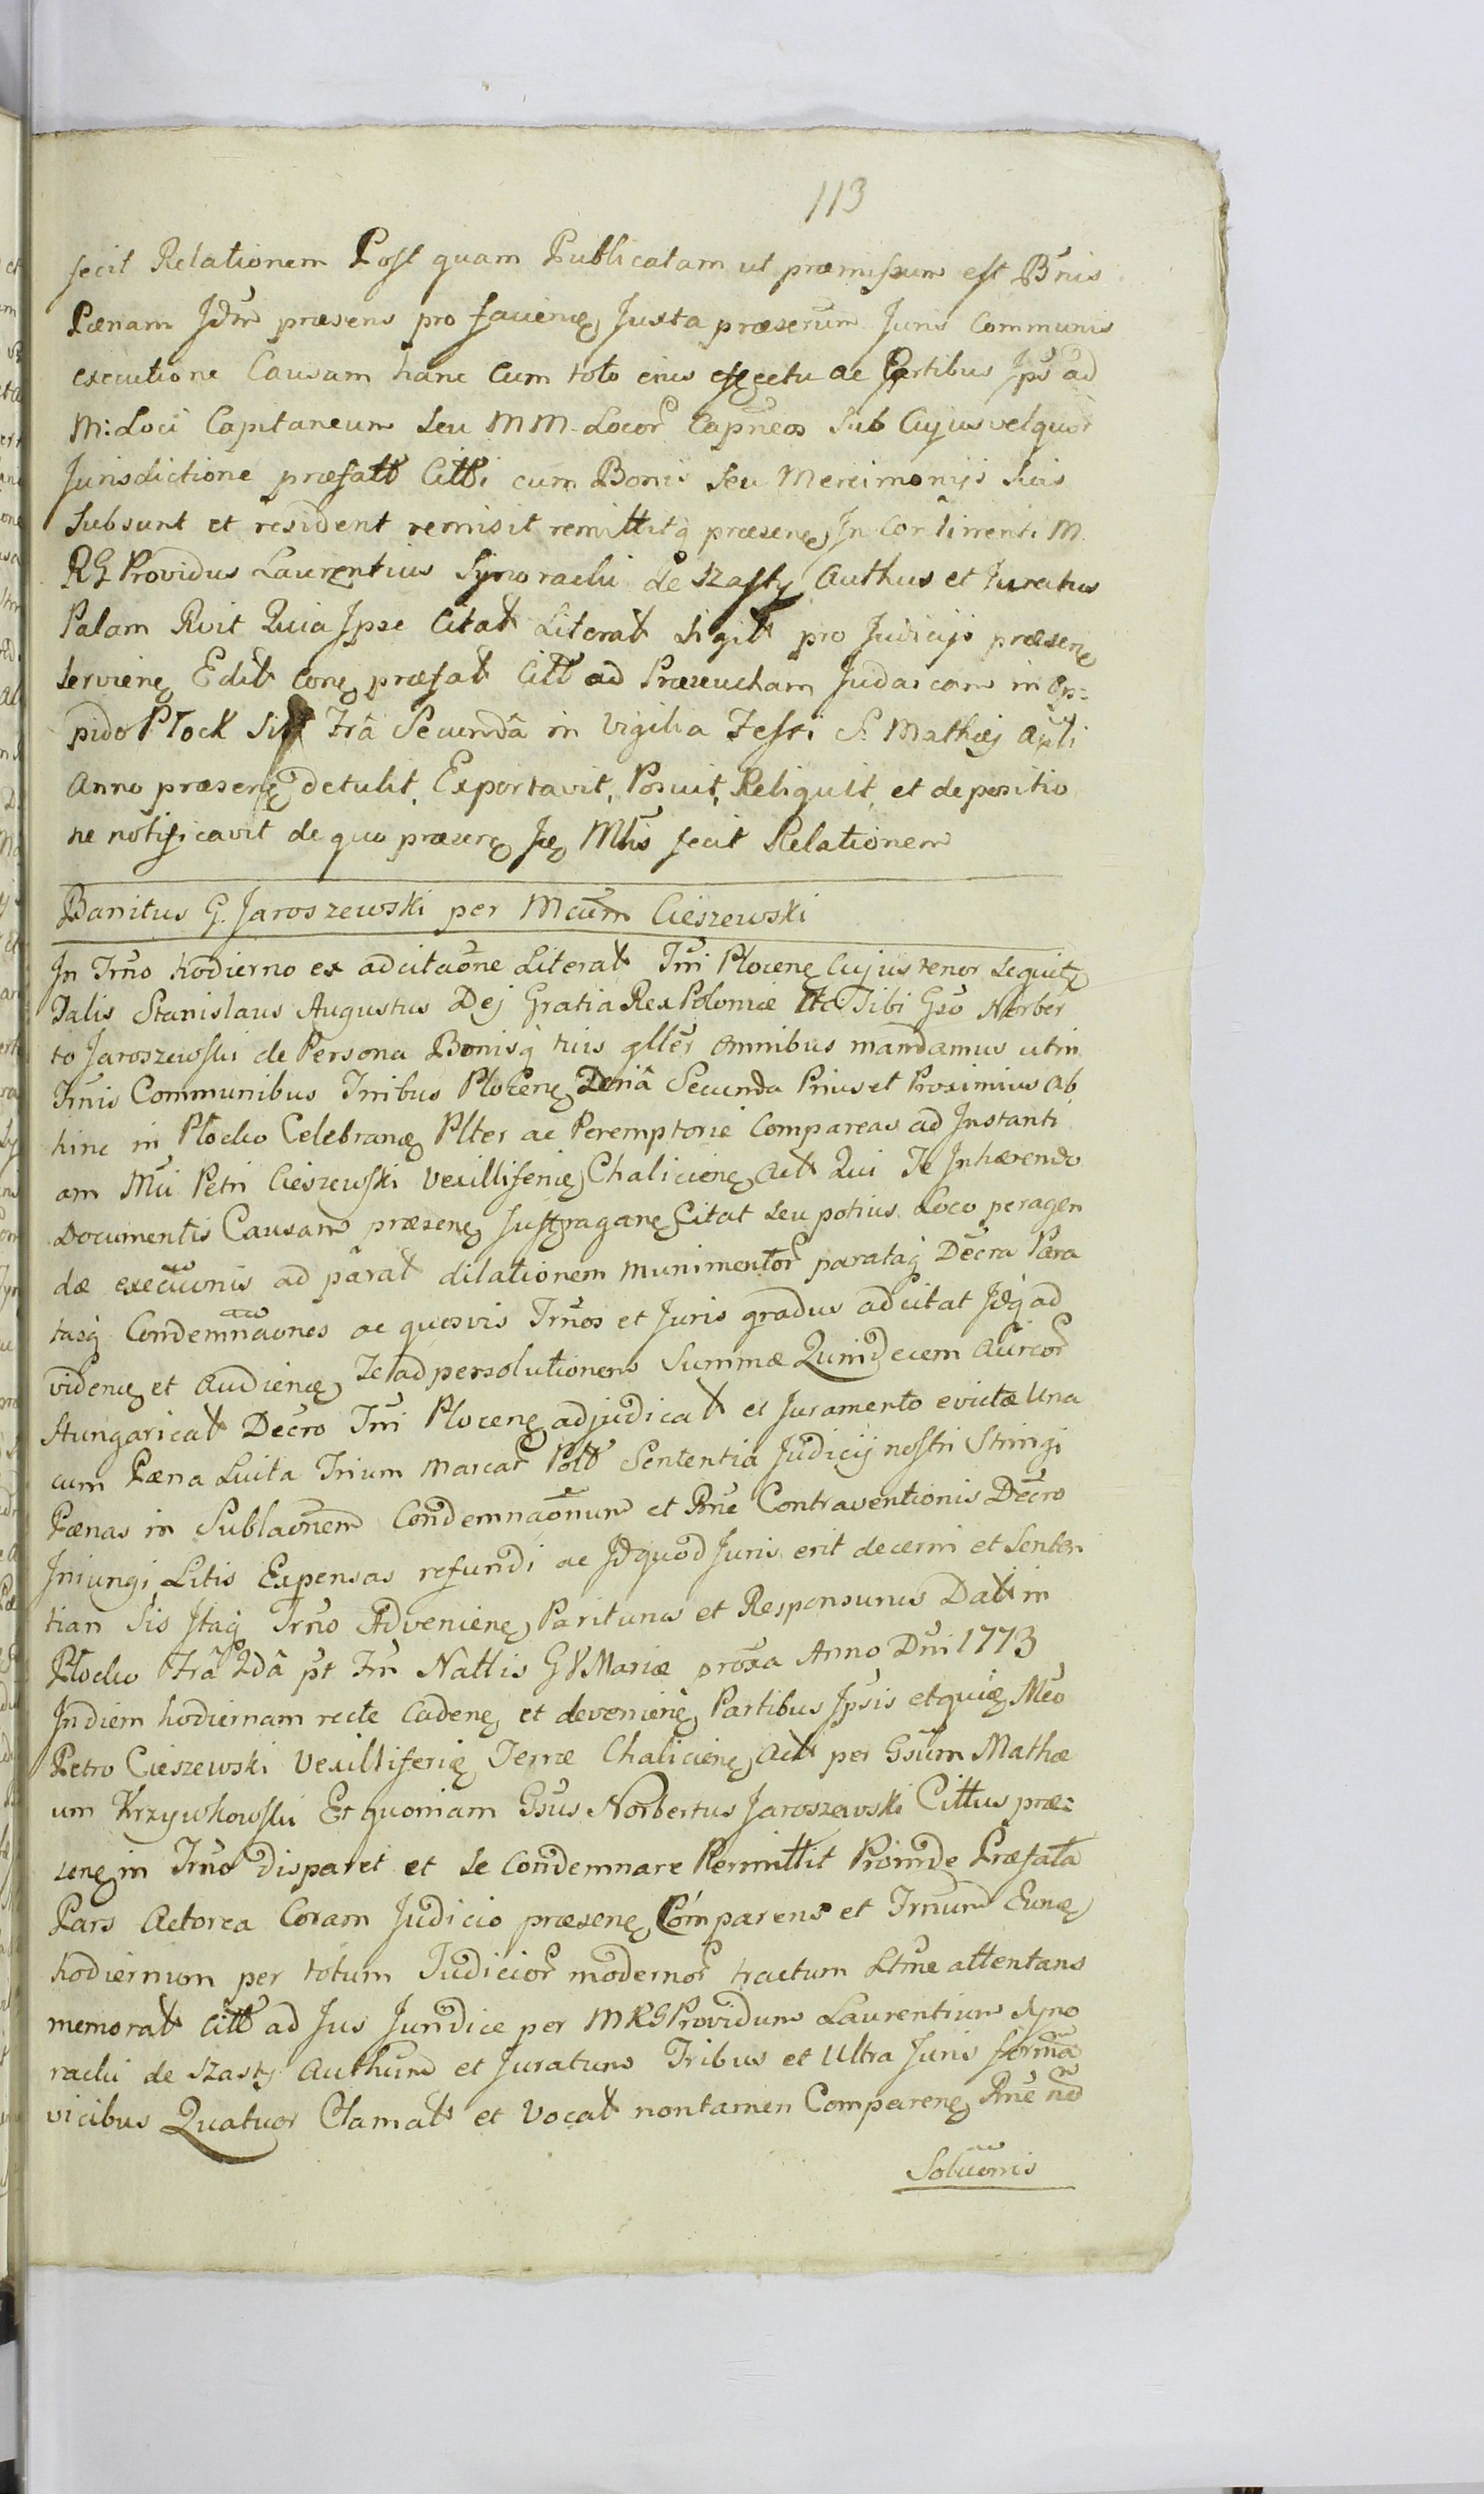 113
fecit Relationem Post quam Publicatam ut præmissum est B̃nis
Pænam Jd̃m præsens pro favienę Juxta præserũm Juris Communis
executione Causam hanc Cum toto eius effectu ac Partibus Jps̃ ad
M: Loci Capitaneum seu MM. Locor̃ Cap̃neos Sub Cujusvelquor̃
Jurisdictione præfatt Citti cum Bonis seu Mercimonijs Suis
Subsunt et resident remisit remittitq̃ præsenę In Continenti M.
RG Providus Laurentius Synoracki de Szasty Authus et Juratus
Palam Rvit Quia Ipse Citatt Literatt Sigitt pro Judicijs præsenę
servienę Editt Conę præfatt Citt ad Præzeucham Judaicam in Op=
pido Płock Sitt Fr̃a Secundâ in Vigilia Festi S. Mathæj Ap̃li
Anno præsenę detulit, Exportavit, Posuit, Reliquit, et depositio
ne notificavit de quo præsenę Ję Ml̃is fecit Relationem
Banitus G. Jaroszewski per Mcũm Cieszewski
In Tr̃no hodierno ex adcitaõne Literatt Tr̃ri Plocenę Cujus tenor sequitę
Talis Stanislaus Augustus Dej Gratia Rex Poloniæ Etc Tibi Gs̃o Norber
to Jaroszewski de Persona Bonisq̃ tuis gll̃er Omnibus mandamus utin
Tr̃nis Communibus Tr̃ribus Plocenę Feriâ Secunda Prius et Proximius ab
hinc in Płocko Celebranę Plter ac Peremptorie Compareas ad Instanti
am Mc̃i Petri Cieszewski Vexilliferię Chalicienę Actt Qui Te Inhærendo
Documentis Causam præsenę suffraganę Citat seu potius Loco peragen
dæ execuõnis ad pâratt dilationem munimentor̃ paratâq̃ Dec̃ra Para
tasq̃ Condemnaõnes ac quosvis Tr̃nos et Juris gradus adcitat Jdq̃ ad
videnę et Audienę Te ad persolutionem Summæ Quindecem Aũreor̃
Hungaricatt Dec̃ro Tr̃ri Plocenę adjudicatt et Juramento evictæ Una
cum Pæna Luita Trium Marcar̃ Poltt Sententia Judicij nostri Stringi
Pænas in Sublaõnem Condemnaõnum et Pñe Contraventionis Dec̃ro
Iniungi Litis Expensas refundi ac Jdquod Juris erit decerni et Senten
tiari Sis Itaq̃ Tr̃no Advenienę Pariturus et Responsurus Datt in
Płocko Fr̃a 2dâ p̃t Fr̃m Nattis GVMariæ prox̃a Anno Dñi 1773
In diem hodiernam recte Cadenę et devenienę Partibus Ipsis etquię Mc̃o
Petro Cieszewski Vexilliferię Terræ Chalicienę Actt per Gs̃um Mathæ
um Krzywkowski Et quoniam Gs̃us Norbertus Jaroszewski Cittus præ=
senę in Tr̃no disparet et se Condemnare Permittit Proinde Præfata
Pars Actorea Coram Judicio præsenę Comparens et Tr̃num Eunę
hodiernum per totum Judicior̃ modernor̃ tractum Ltm̃e attentans
memoratt Citt ad Jus Juridice per MRG Providum Laurentium Syno
racki de Szasty Authum et Juratum Tribus et Ultra Juris forma
vicibus Quatuor Clamatt et Vocatt nontamen Comparenę Pñe nõ
Soluõnis